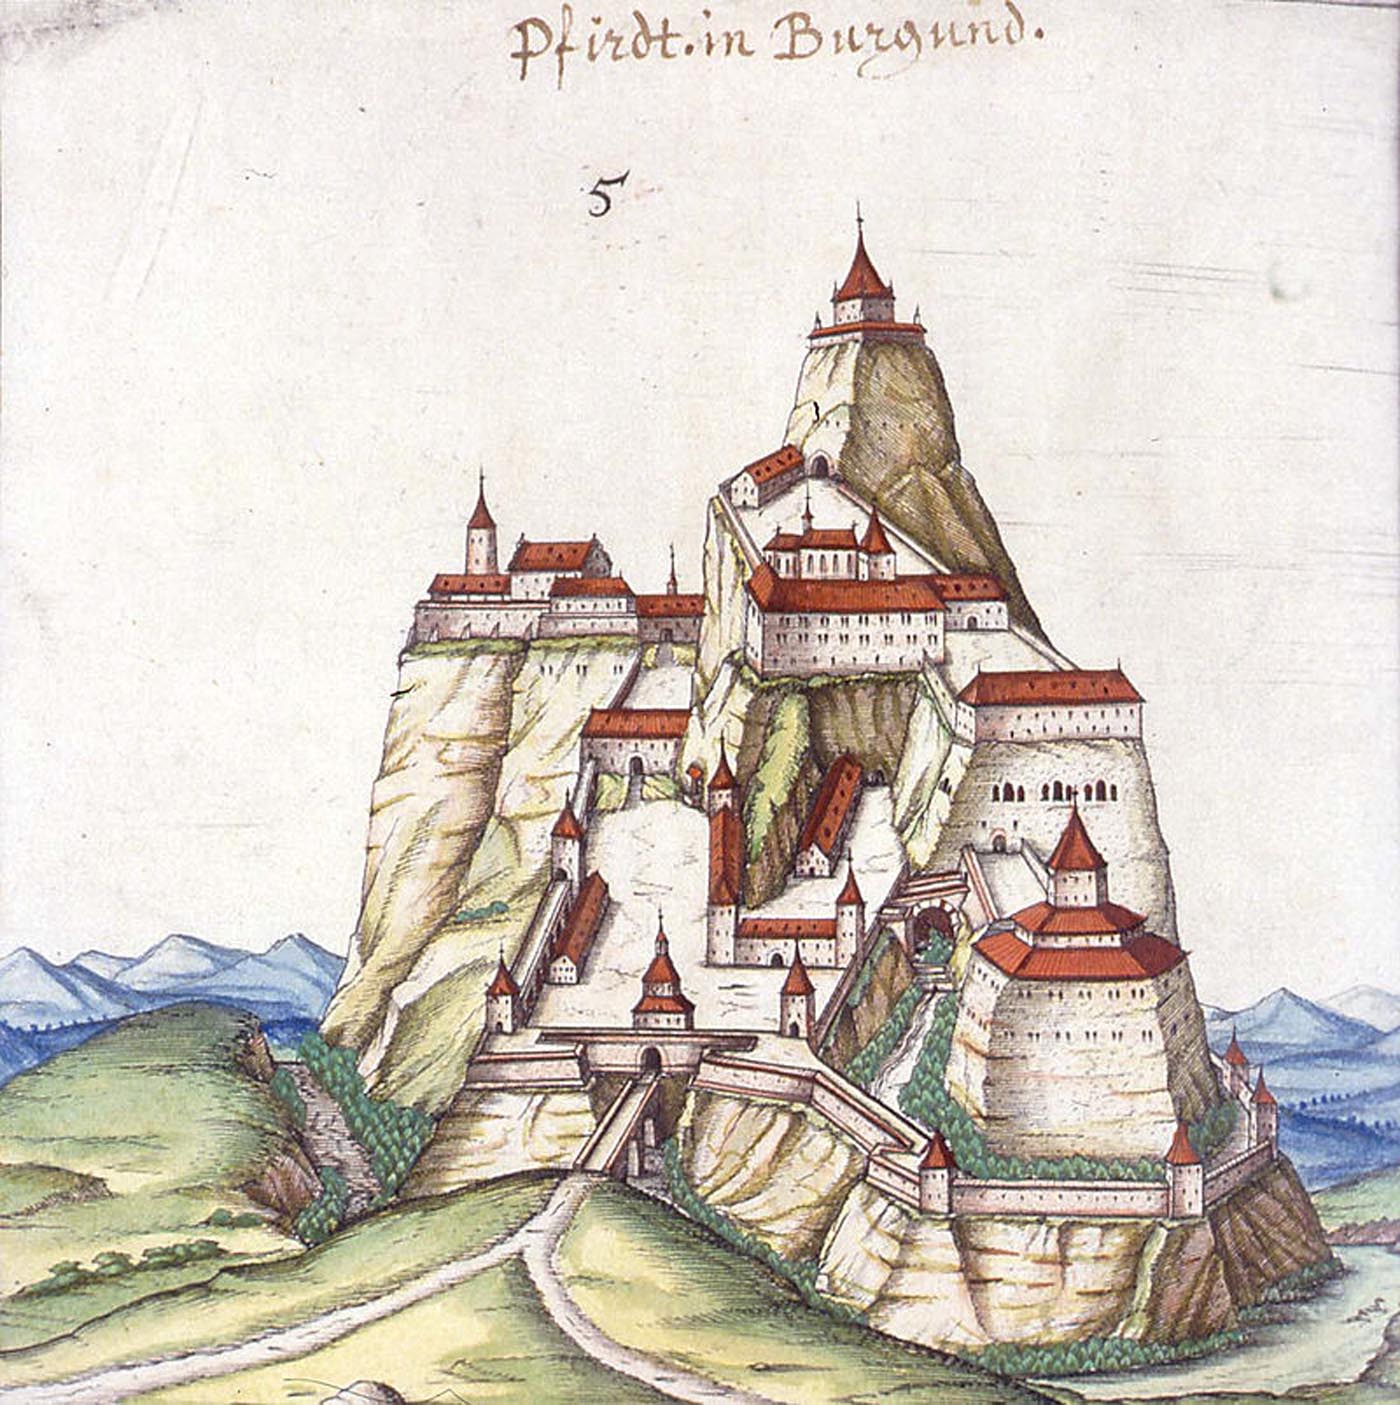 Pfirdt. in Burgund.
5